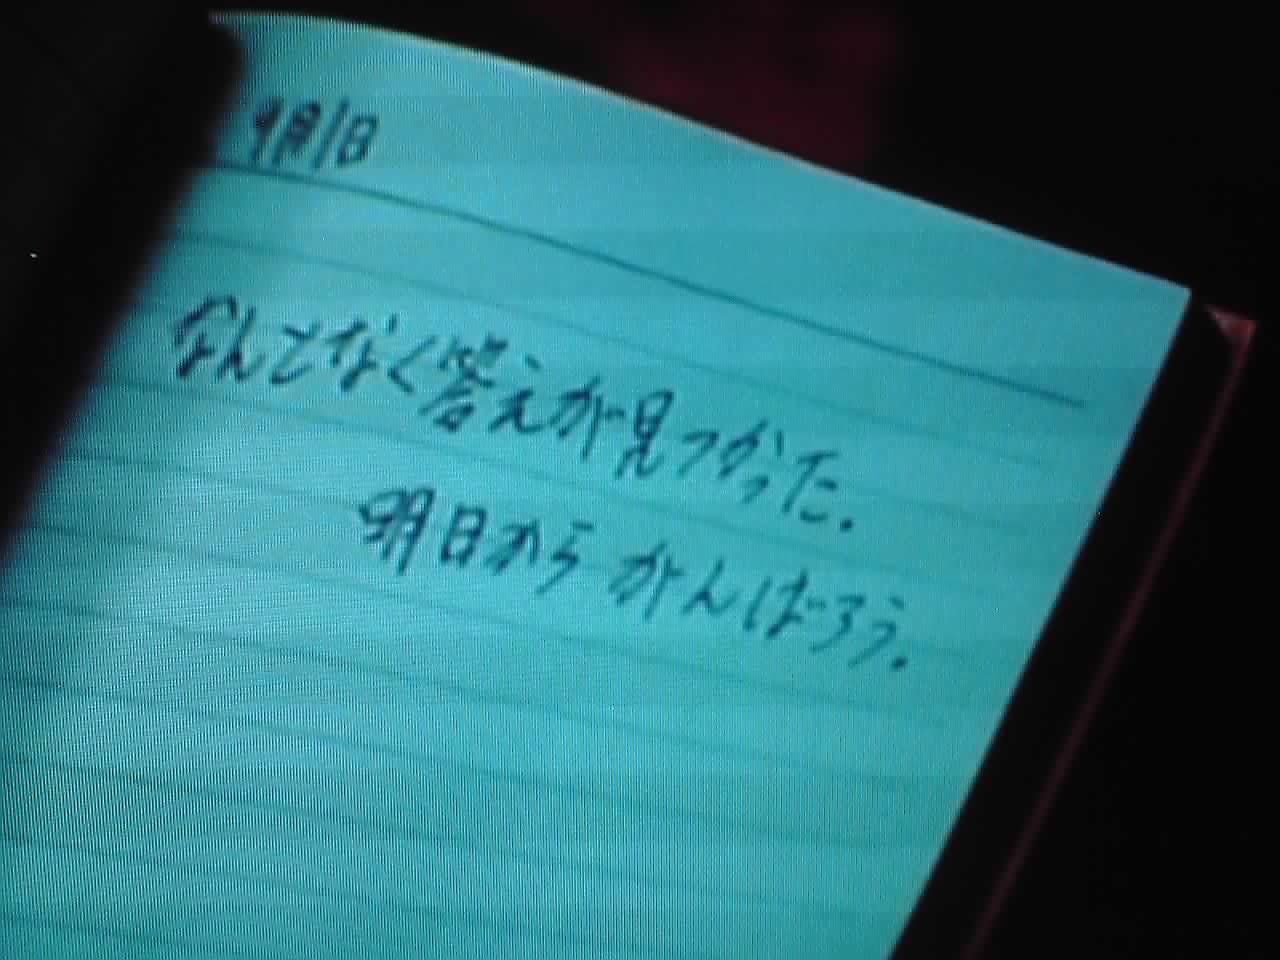 9月1日
なんとなく答えが見つかった.
明日から がんばろう.